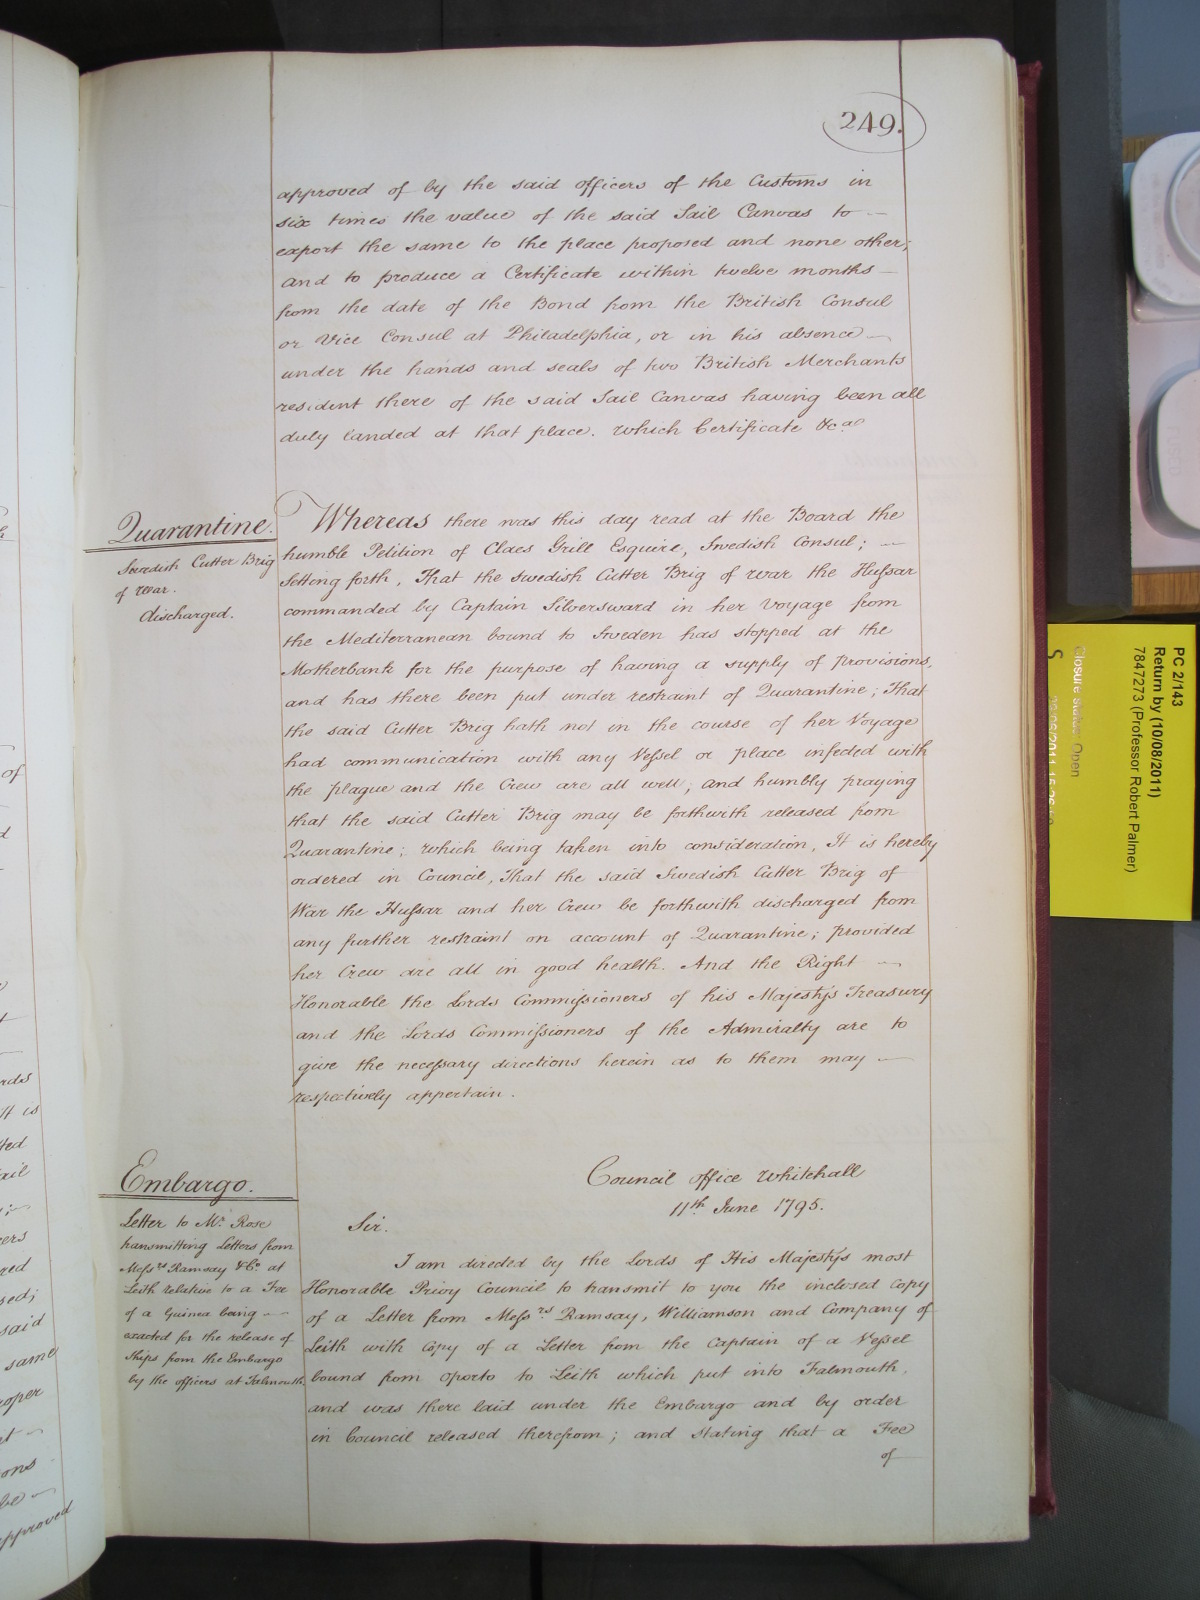 249.
approved of by the said officers of the Customs in
six times the value of the said Sail Canvas to —
export the same to the place proposed and none other;
and to produce a Certificate within twelve months —
from the date of the Bond from the British Consul
or Vice Consul at Philadelphia, or in his absence —
under the hands and seals of two British Merchants
resident there of the said Sail Canvas having been all
duly landed at that place. which Certificate &c.a
Quarantine.
Swedish Cutter Brig
of War.
discharged.
Whereas there was this day read at the Board the
humble Petition of Claes Grill Esquire, Swedish Consul; —
Setting forth, That the Swedish Cutter Brig of War the Hussar
commanded by Captain Silversward in her Voyage from
the Mediterranean bound to Sweden has stopped at the
Motherbank for the purpose of having a supply of Provisions,
and has there been put under restraint of Quarantine; That
the said Cutter Brig hath not in the course of her Voyage
had communication with any Vessel or place infected with
the plague and the Crew are all well; and humbly praying
that the said Cutter Brig may be forthwith released from
Quarantine; which being taken into consideration, It is hereby
ordered in Council, That the said Swedish Cutter Brig of
War the Hussar and her Crew be forthwith discharged from
any further restraint on account of Quarantine; provided
her Crew are all in good health. And the Right —
Honorable the Lords Commissioners of his Majestys Treasury
and the Lords Commissioners of the Admiralty are to
give the necessary directions herein as to them may —
respectively appertain.
Embargo.
Letter to Mr. Rose
transmitting Letters from
Messrs Ramsay & Co. at
Leith relative to a Fee
of a Guinea being —
exacted for the release of
Ships from the Embargo
by the officers at Falmouth.
Council office Whitehall
11th June 1795.
Sir.
I am directed by the Lords of His Majestys most
Honorable Privy Council to transmit to you the inclosed Copy
of a Letter from Messrs Ramsay, Williamson and Company of
Leith with Copy of a Letter from the Captain of a Vessel
bound from Oporto to Leith which put into Falmouth,
and was there laid under the Embargo and by order
in Council released therefrom; and stating that a Fee
of
PC 2/143
Return by (10/08/2011)
7847273 (Professor Robert Palmer)
Closure status: Open
S